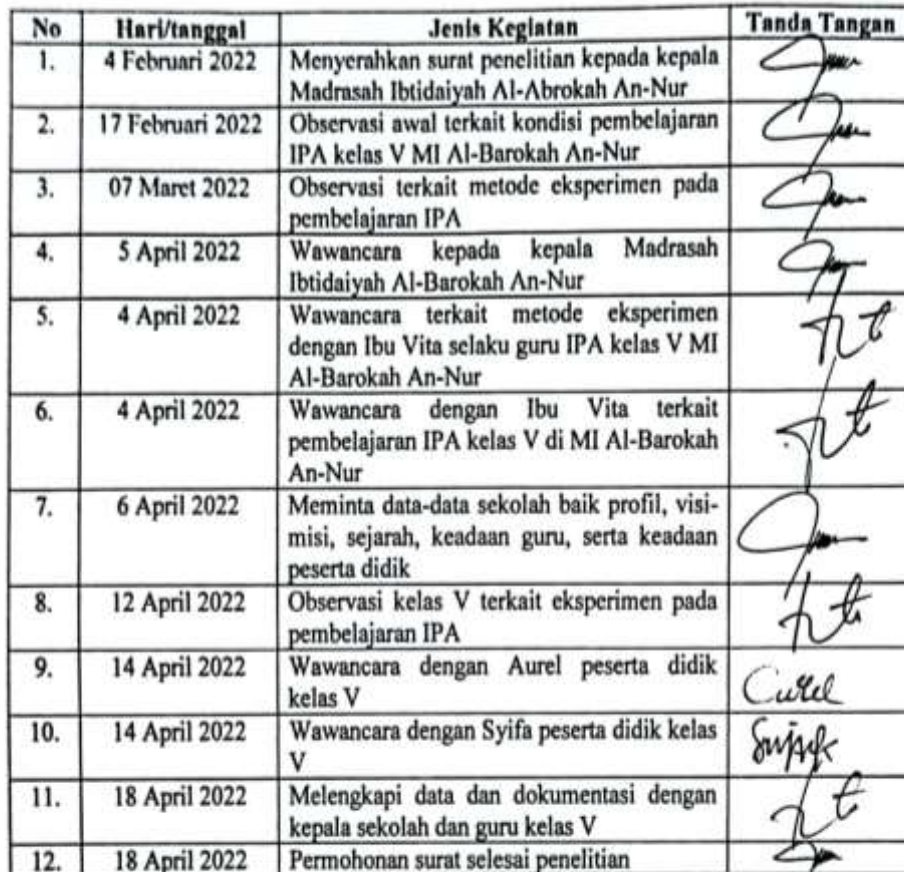 No Hari/tanggal Jenis Kegiatan Tanda Tangan
1. 4 Februari 2022 Menyerahkan surat penelitian kepada kepala
Madrasah Ibtidaiyah Al-Abrokah An-Nur
2. 17 Februari 2022 Observasi awal terkait kondisi pembelajaran
IPA kelas V MI Al-Barokah An-Nur
3. 07 Maret 2022 Observasi terkait metode eksperimen pada
pembelajaran IPA
4. 5 April 2022 Wawancara kepada kepala Madrasah
Ibtidaiyah Al-Barokah An-Nur
5. 4 April 2022 Wawancara terkait metode eksperimen
dengan Ibu Vita selaku guru IPA kelas V MI
Al-Barokah An-Nur
6. 4 April 2022 Wawancara dengan Ibu Vita terkait
pembelajaran IPA kelas V di MI Al-Barokah
An-Nur
7. 6 April 2022 Meminta data-data sekolah baik profil, visi-
misi, sejarah, keadaan guru, serta keadaan
peserta didik
8. 12 April 2022 Observasi kelas V terkait eksperimen pada
pembelajaran IPA
9. 14 April 2022 Wawancara dengan Aurel peserta didik
kelas V
10. 14 April 2022 Wawancara dengan Syifa peserta didik kelas
V
11. 18 April 2022 Melengkapi data dan dokumentasi dengan
kepala sekolah dan guru kelas V
12. 18 April 2022 Permohonan surat selesai penelitian